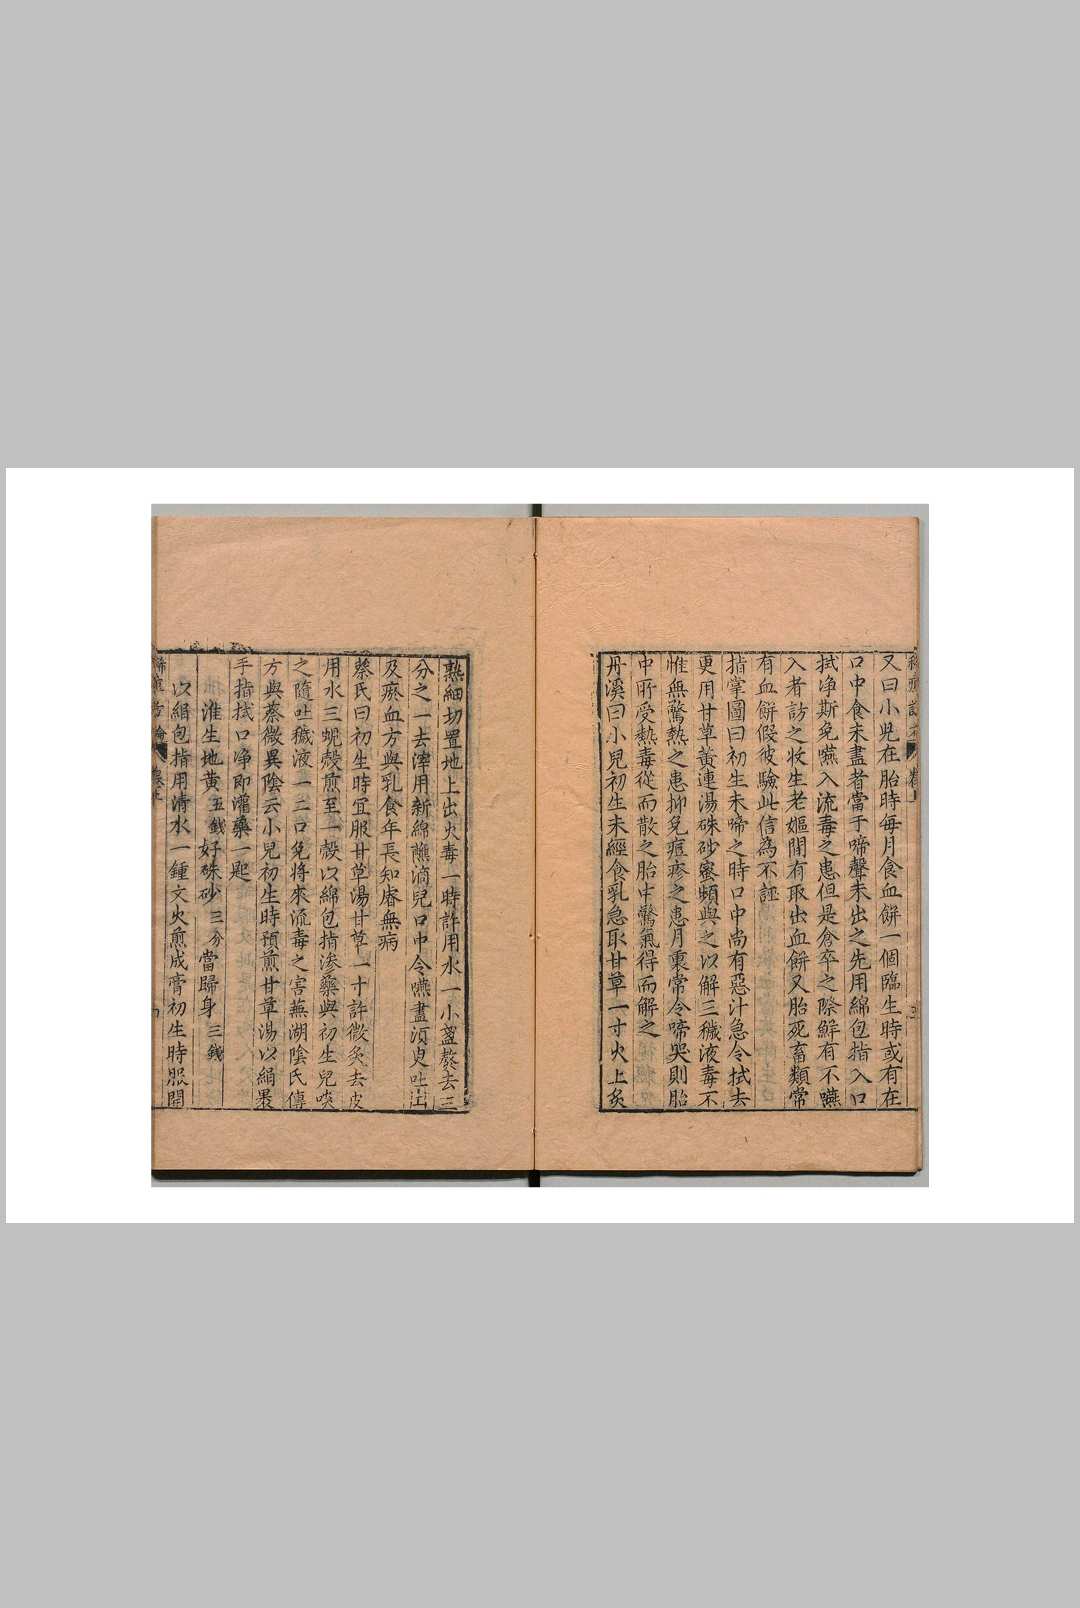 又曰小兒在胎時每月食血餅一個臨生時或有在
口中食未盡者當于啼聲未出之先用綿包指入口
拭净斯免嚥入流毒之患但是倉卒之際鮮有不嚥
入者訪之收生老嫗間有取出血餅又胎死畜類常
有血餅假彼驗此信為不誣
指掌圖曰初生未啼之時口中尚有惡汁急令拭去
更用甘草黃連湯硃砂蜜頻與之以解三穢液毒不
惟無驚熱之患抑免痘疹之患月裏常令啼哭則胎
中所受熱毒從而散之胎中驚氣得而解之
丹溪曰小兒初生未經食乳急取甘草一寸火上炙
熟細切置地上出火毒一時許用水一小盞熬去三
分之一去滓用新綿蘸滴兒口中令嚥盡須臾吐出
及瘀血方與乳食年長知睿無病
蔡氏曰初生時宜服甘草湯甘草一寸許微炙去皮
用水三蜆殼煎至一殼以綿包指滲藥與初生兒咬
之隨吐穢液一二口免將來流毒之害蕪湖陰氏傳
方與蔡微異陰云小兒初生時預煎甘草湯以絹裹
手指拭口净即灌藥一匙
淮生地黃五錢 好硃砂三分 當歸身三錢
以絹包指用清水一鍾文火煎成膏初生時服開